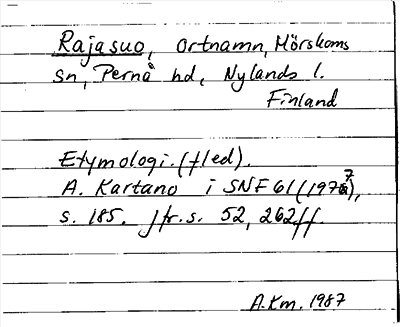 Rajasuo, Ortnamn, Mörskoms
sn, Pernå hd, Nylands l.
Finland
Etymologi. (fled).
A. Kartano i SNF 61 (1977),
s. 185. Jfr. s. 52, 262ff.
A.Km. 1987